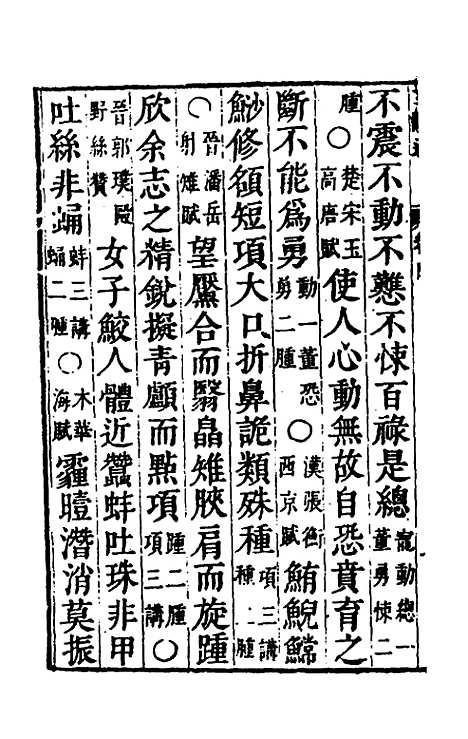 不震不動不戁不悚百祿是總寵動總一董勇悚二
腫〇楚宋玉高唐賦使人心動無故自恐賁育之
斷不能爲勇動一董恐勇二腫〇漢張衡西京賦鮪鯢鱨
魦修額短項大口折鼻詭類殊種項三講種二腫
〇晉潘岳射雉賦望黶合而翳晶雉脥肩而旋踵
欣余志之精銳擬青顱而點項踵二腫項三講〇
晉郭璞䤈野絲贊女子鮫人體近蠶蚌吐珠非甲
吐絲非蛹蚌三講蛹二腫〇木華海賦霾曀潛消莫振